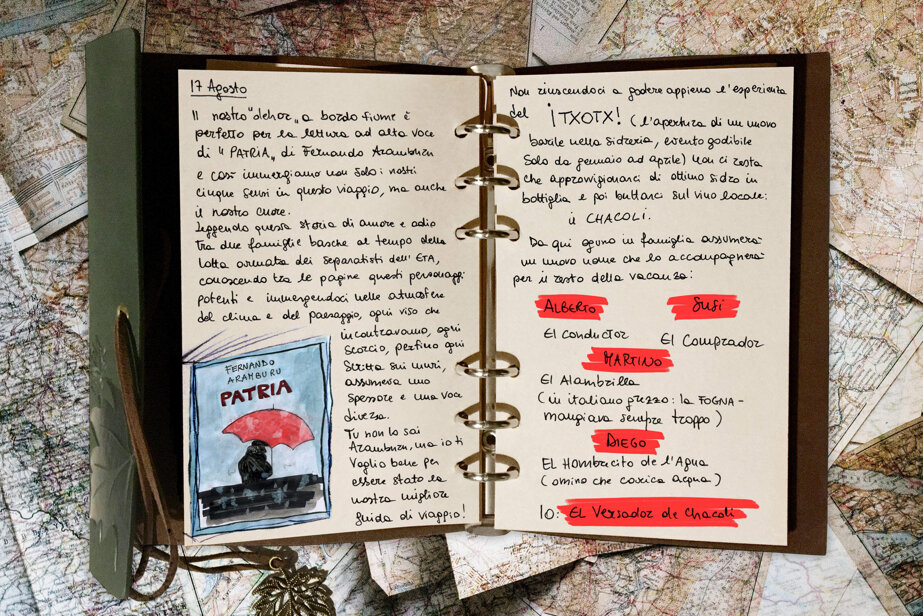 17 Agosto
Il nostro "dehor" a bordo fiume è
perfetto per la lettura ad alta voce
di "PATRIA" di Fernando Aramburu
e così immergiamo non solo i nostri
cinque sensi in questo viaggio, ma anche
il nostro cuore.
Leggendo questa storia di amore e odio
tra due famiglie basche al tempo della
lotta armata dei separatisti dell'ETA,
conoscendo tra le pagine questi personaggi
potenti e immergendoci nelle atmosfere
del clima e del paesaggio, ogni viso che
incontravamo, ogni
scorcio, perfino ogni
scritta sui muri,
assumeva uno
spessore e una voce
diversa.
Tu non lo sai
Aramburu, ma io ti
voglio bene per
essere stato la
nostra migliore
guida di viaggio!
FERNANDO
ARAMBURU
PATRIA
Non riuscendoci a godere appieno l'esperienza
del ¡TXOTX! (l'apertura di un nuovo
barile nella sidreria, evento godibile
solo da gennaio ad aprile) non ci resta
che approvvigionarci di ottimo sidro in
bottiglia e poi buttarci sul vino locale:
il CHACOLI.
Da qui ognuno in famiglia assumerà
un nuovo nome che lo accompagnerà
per il resto della vacanza:
ALBERTO SUSI
El conductor El Comprador
MARTINO
El Alambrilla
(in italiano grezzo: la FOGNA-
mangiava sempre troppo)
DIEGO
El Hombrecito de l'Agua
(omino che carica acqua)
IO: El Versador de Chacoli